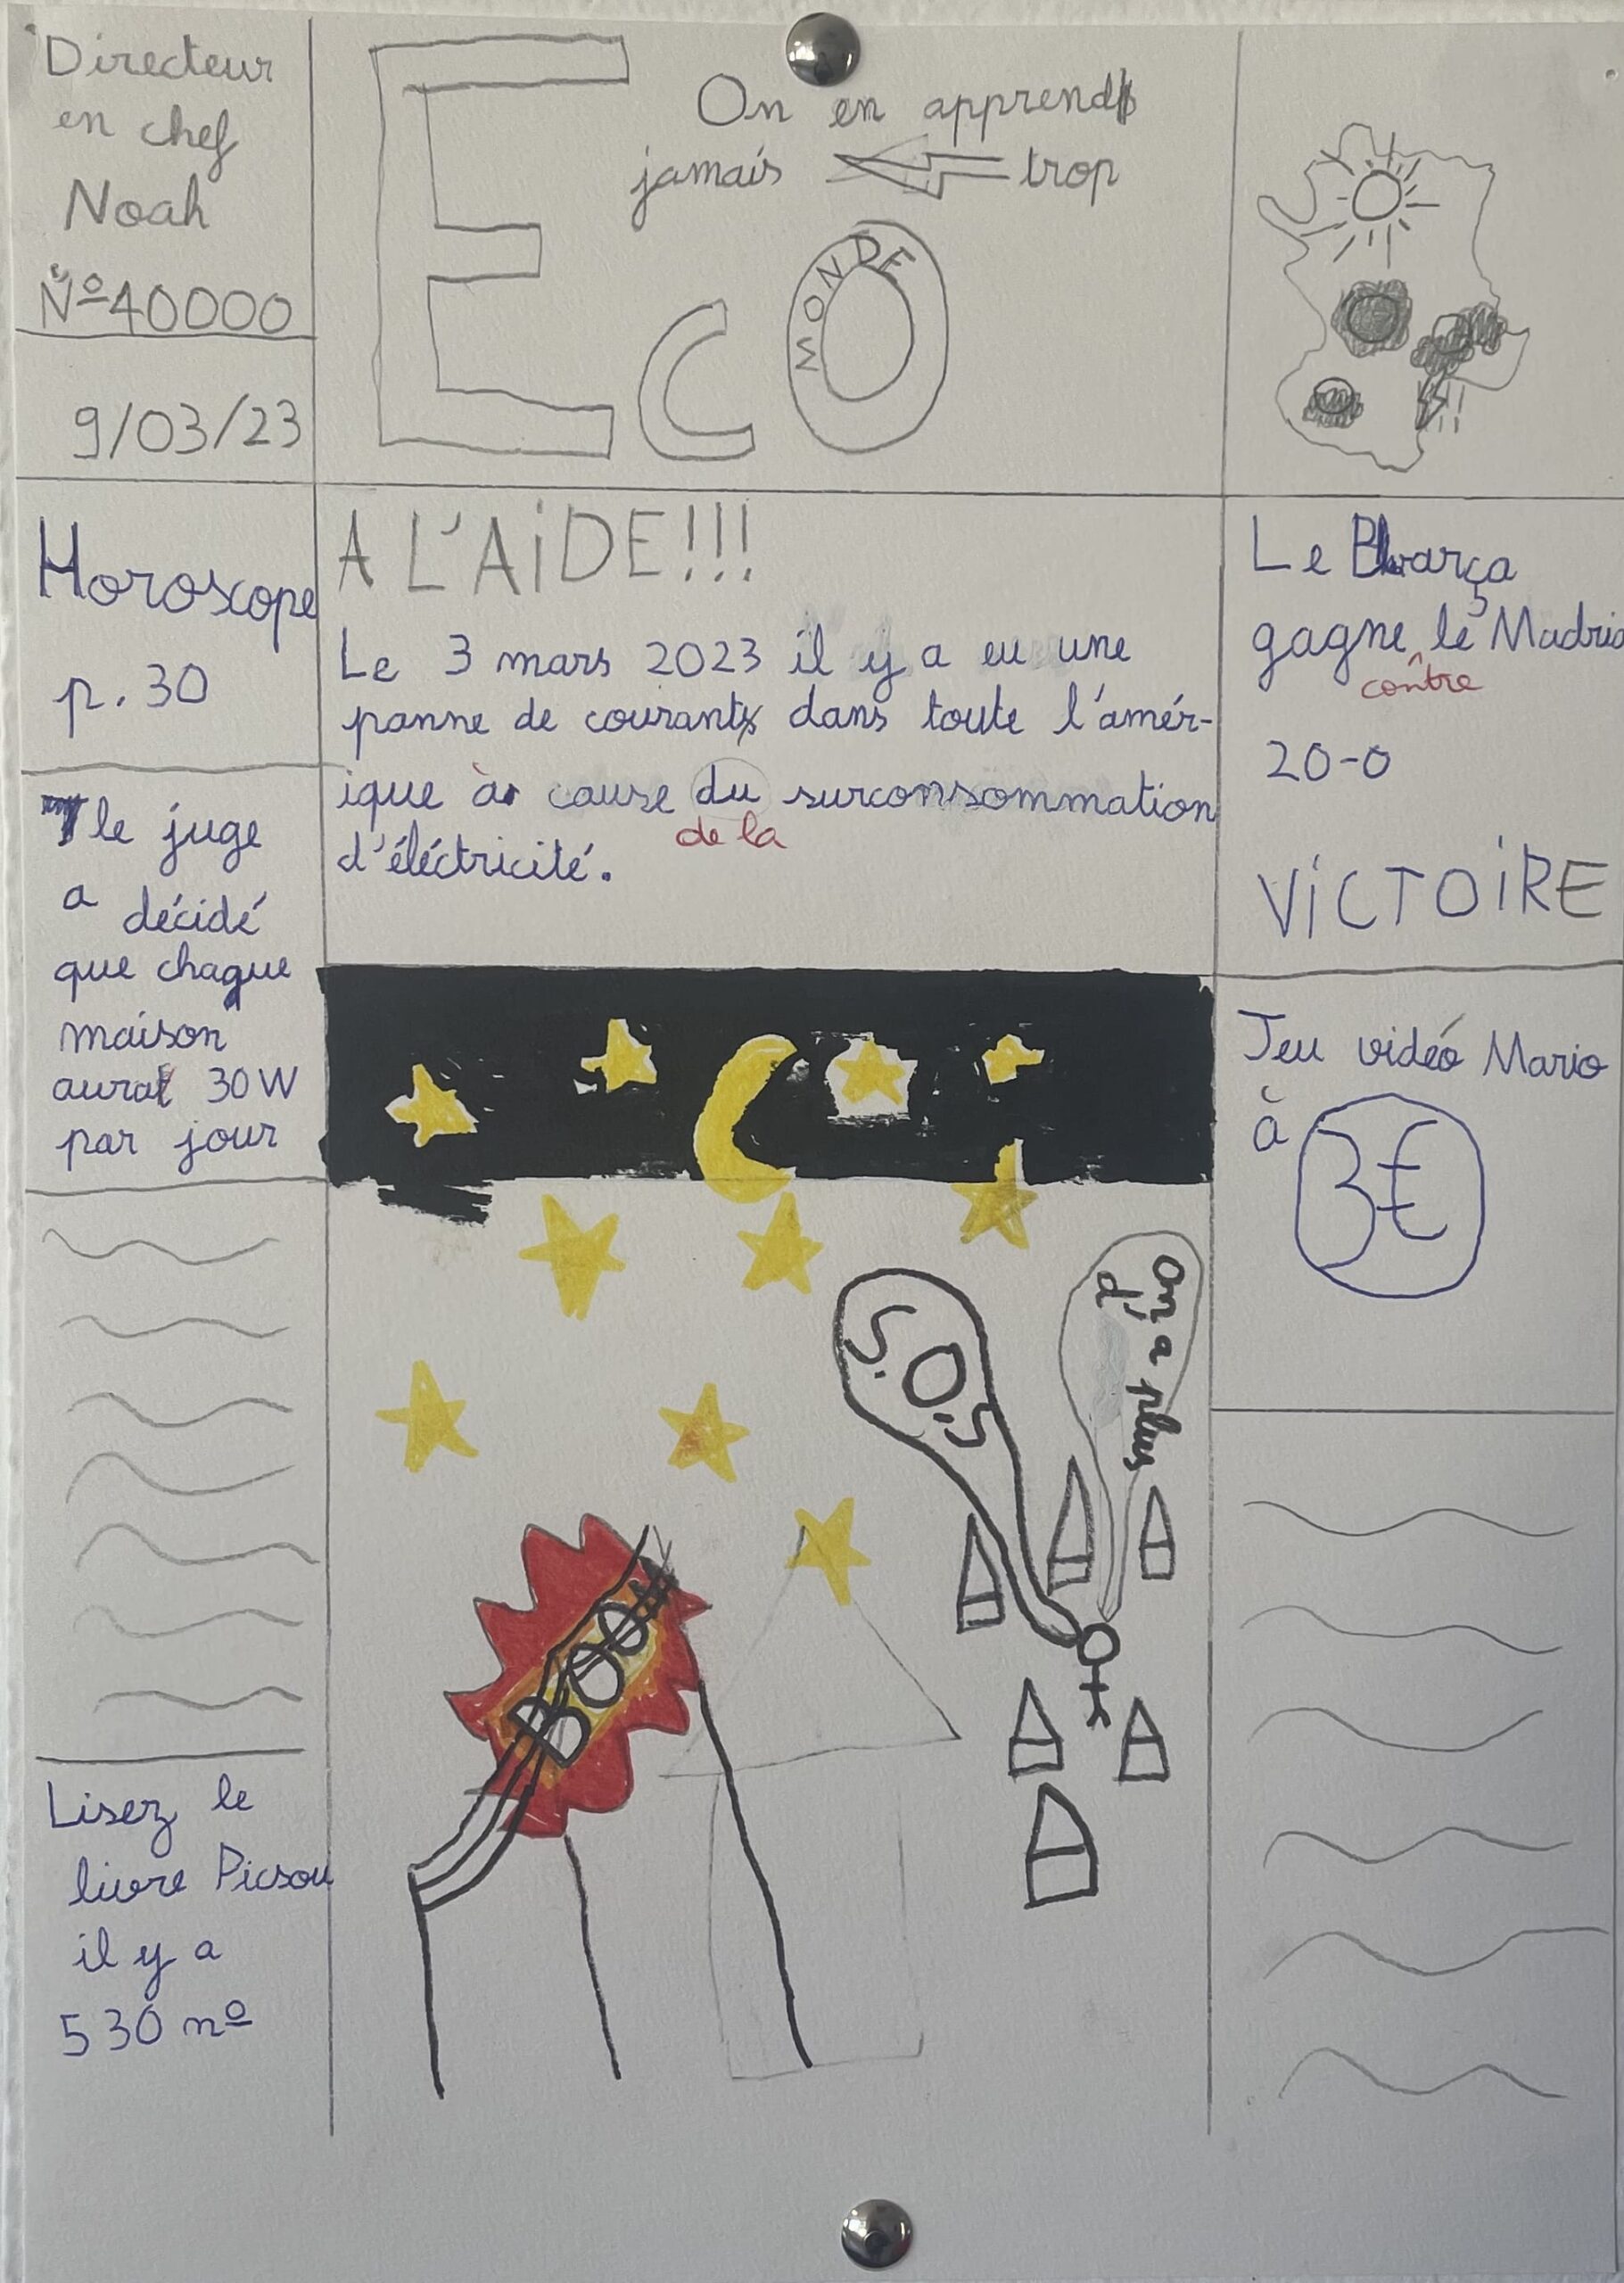 Directeur
en chef
Noah
Nº40000
9/03/23
On en apprend
jamais trop
ECO
MONDE
Horoscope
p. 30
le juge
a décidé
que chaque
maison
aura 30W
par jour
Lisez le
livre Picsou
il y a
530 nº
A L'AiDE!!!
Le 3 mars 2023 il y a eu une
panne de courant dans toute l'amér-
ique à cause du surconsommation
de la
d'éléctricité.
S.O.S
On a plus
d'
BOOM
Le Barça
gagne le Madrid
contre
20-0
ViCTOiRE
Jeu vidéo Mario
à 3€